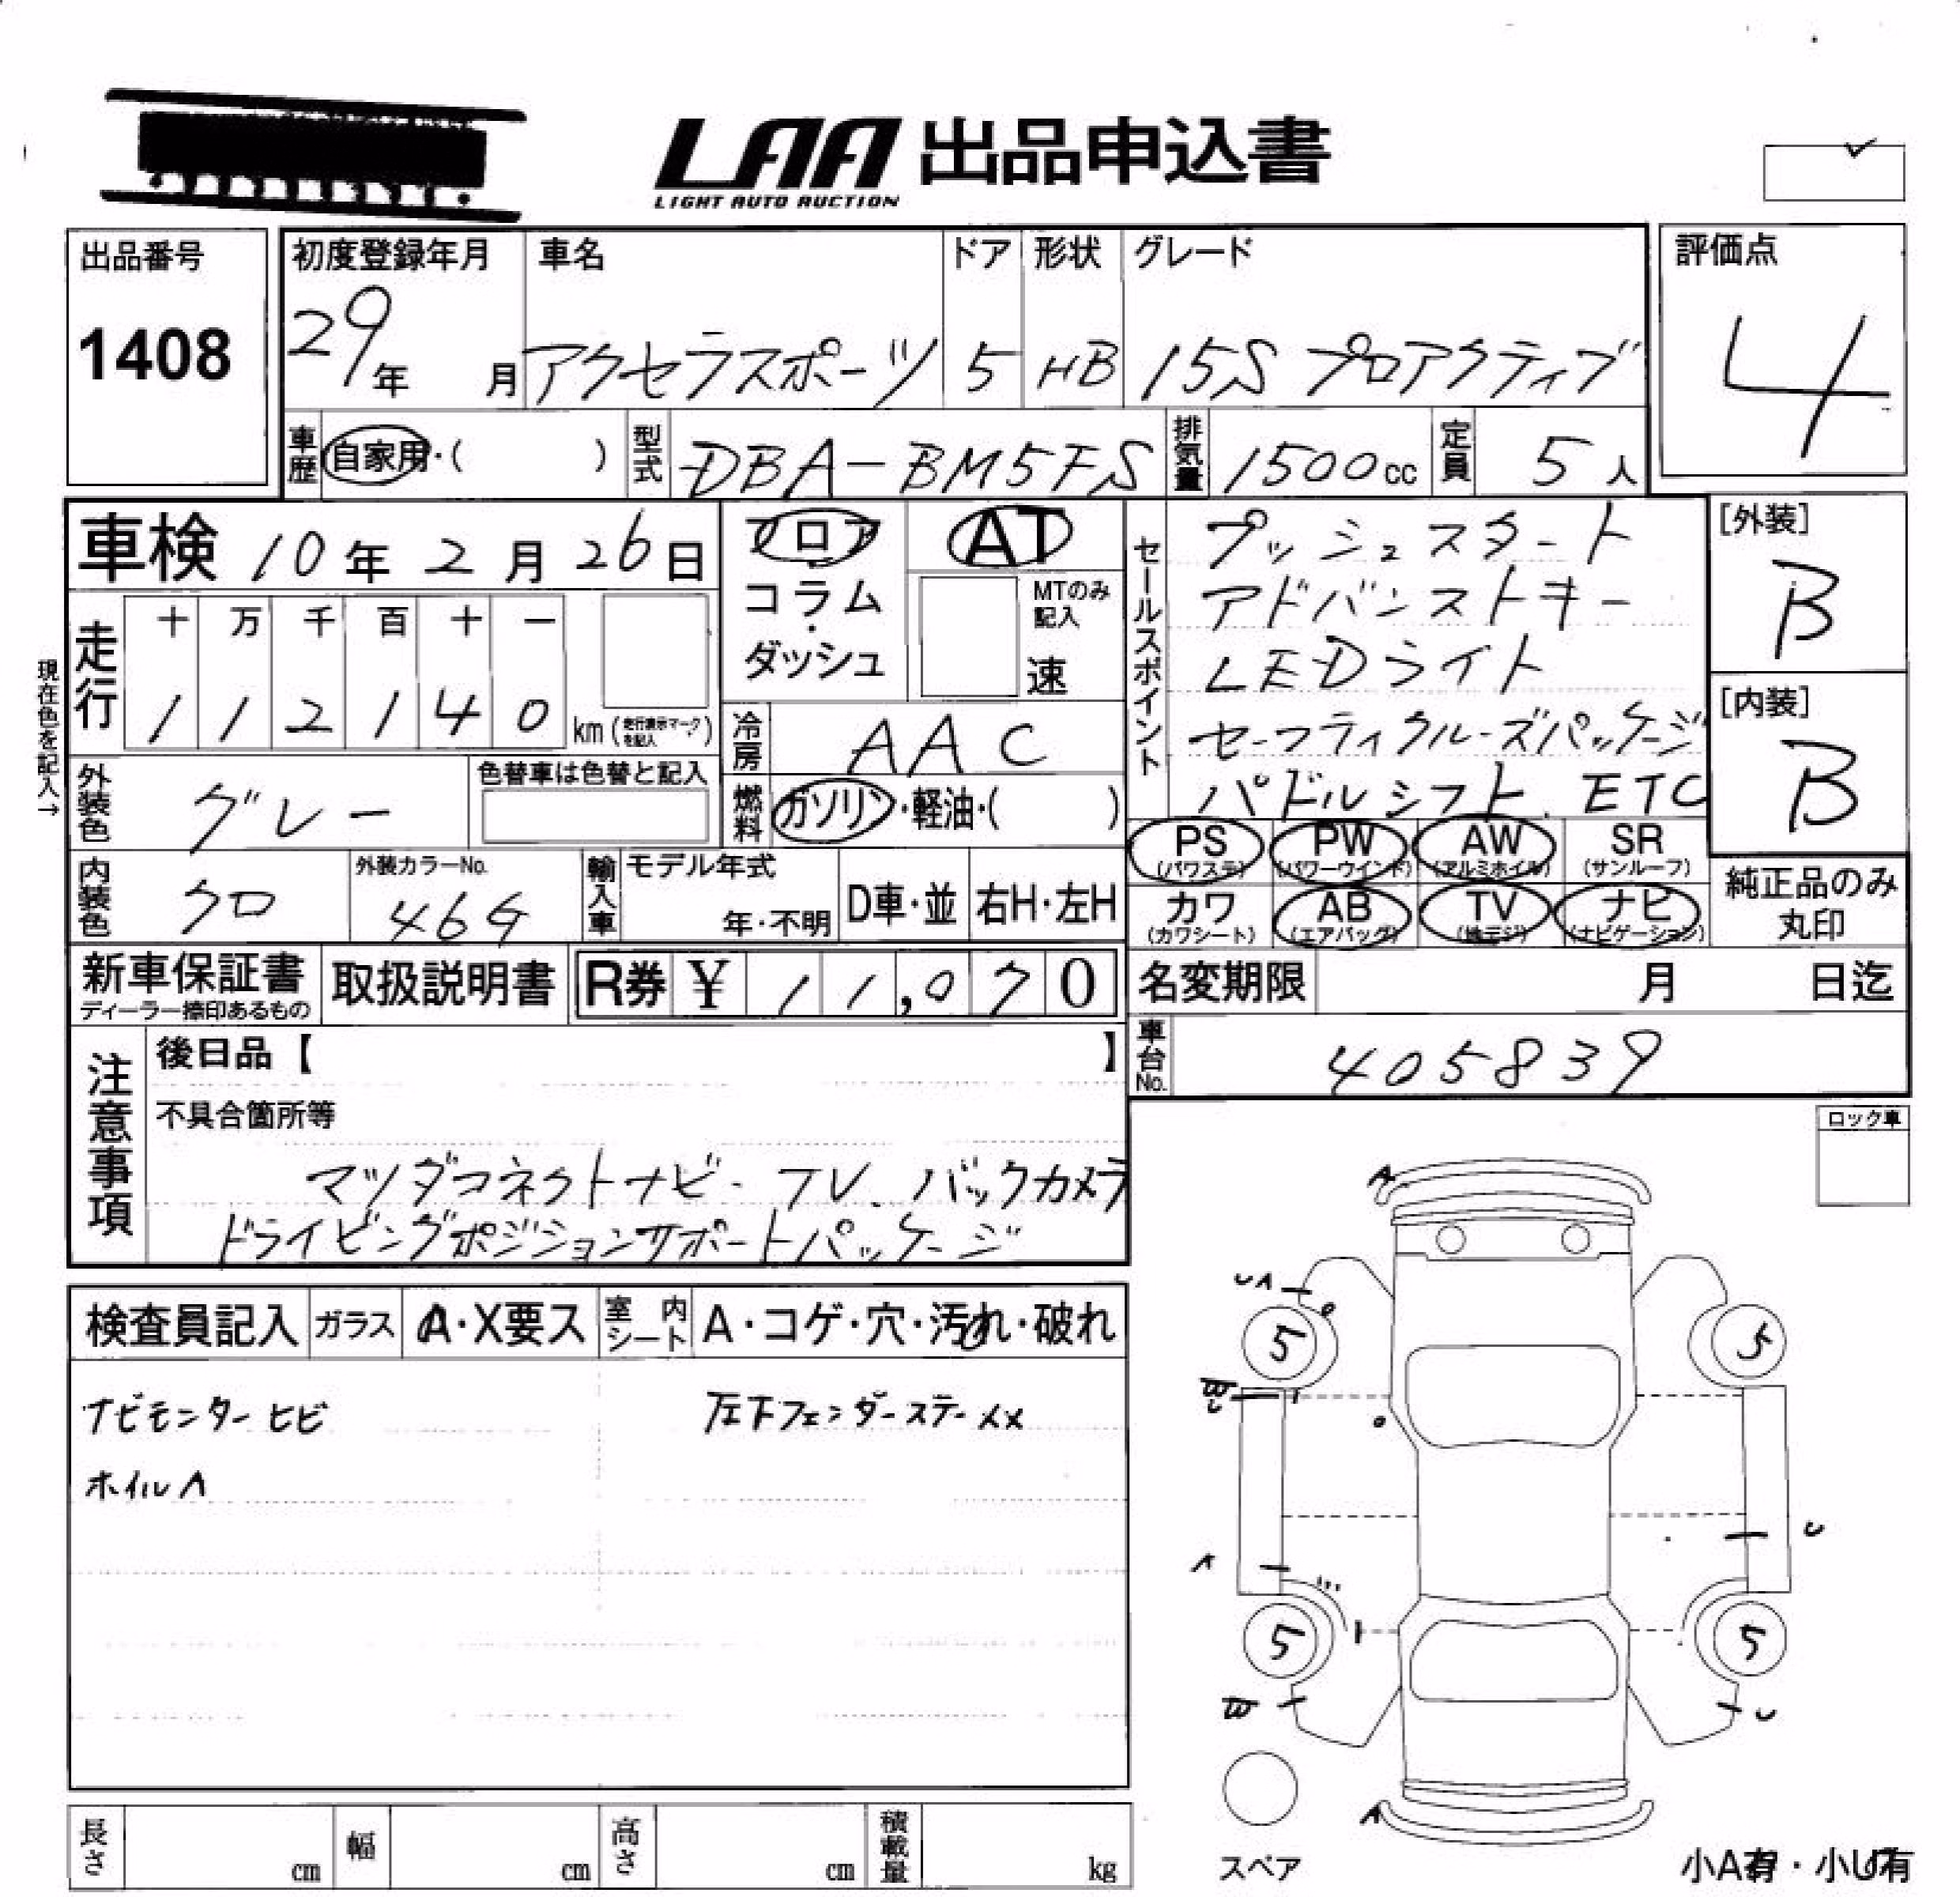 LAA 出品申込書
LIGHT AUTO AUCTION
出品番号
1408
初度登録年月
29年 月
車名
アクセラスポーツ
ドア
5
形状
HB
グレード
15S プロアクティブ
評価点
4
車歴 自家用・( )
型式 DBA-BM5FS
排気量 1500cc
定員 5人
車検 10年2月26日
現在色を記入→
走行
十 万 千 百 十 一
1 1 2 1 4 0 km (走行表示マークを記入)
フロア・コラム・ダッシュ
AT
MTのみ記入
速
冷房 AAC
燃料 ガソリン・軽油・( )
セールスポイント
プッシュスタート
アドバンストキー
LEDライト
セーフティクルーズパッケージ
パドルシフト、ETC
[外装]
B
[内装]
B
外装色 グレー
色替車は色替と記入
内装色 クロ
外装カラーNo.
46G
輸入車
モデル年式
年・不明
D車・並
右H・左H
PS (パワステ)
PW (パワーウインド)
AW (アルミホイル)
SR (サンルーフ)
カワ (カワシート)
AB (エアバッグ)
TV (地デジ)
ナビ (ナビゲーション)
純正品のみ
丸印
新車保証書
ディーラー捺印あるもの
取扱説明書
R券 ¥ 11,070
名変期限 月 日迄
車台No. 405839
注意事項
後日品【 】
不具合箇所等
マツダコネクトナビ-TV、バックカメラ
ドライビングポジションサポートパッケージ
ロック車
検査員記入
ガラス A・X要ス
室内シート A・コゲ・穴・汚れ・破れ
ナビモニターヒビ
左下フェンダーステーメメ
ホイルA
A
UA
5
5
W
U
A
U
5
5
W
U
A
スペア
小A有・小U有
長さ cm
幅 cm
高さ cm
積載量 kg